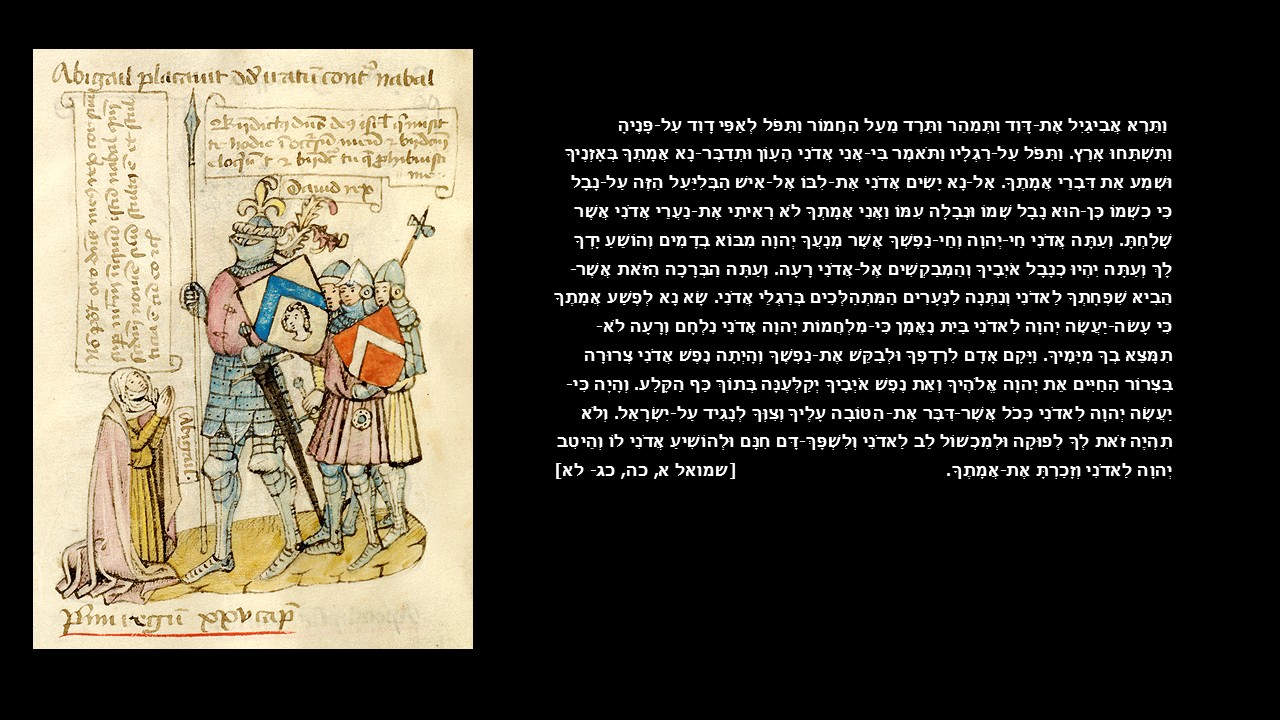 Abigail placauit dd iratu cont nabal
dauid rex
Abigail
primi regu xxv cap
וַתֵּרֶא אֲבִיגַיִל אֶת-דָּוִד וַתְּמַהֵר וַתֵּרֶד מֵעַל הַחֲמוֹר וַתִּפֹּל לְאַפֵּי דָוִד עַל-פָּנֶיהָ
וַתִּשְׁתַּחוּ אָרֶץ. וַתִּפֹּל עַל-רַגְלָיו וַתֹּאמֶר בִּי-אֲנִי אֲדֹנִי הֶעָוֹן וּתְדַבֶּר-נָא אֲמָתְךָ בְּאָזְנֶיךָ
וּשְׁמַע אֵת דִּבְרֵי אֲמָתֶךָ. אַל-נָא יָשִׂים אֲדֹנִי אֶת-לִבּוֹ אֶל-אִישׁ הַבְּלִיַּעַל הַזֶּה עַל-נָבָל
כִּי כִשְׁמוֹ כֶּן-הוּא נָבָל שְׁמוֹ וּנְבָלָה עִמּוֹ וַאֲנִי אֲמָתְךָ לֹא רָאִיתִי אֶת-נַעֲרֵי אֲדֹנִי אֲשֶׁר
שָׁלָחְתָּ. וְעַתָּה אֲדֹנִי חַי-יְהוָה וְחֵי-נַפְשְׁךָ אֲשֶׁר מְנָעֲךָ יְהוָה מִבּוֹא בְדָמִים וְהוֹשֵׁעַ יָדְךָ
לָךְ וְעַתָּה יִהְיוּ כְנָבָל אֹיְבֶיךָ וְהַמְבַקְשִׁים אֶל-אֲדֹנִי רָעָה. וְעַתָּה הַבְּרָכָה הַזֹּאת אֲשֶׁר-
הֵבִיא שִׁפְחָתְךָ לַאדֹנִי וְנִתְּנָה לַנְּעָרִים הַמִּתְהַלְּכִים בְּרַגְלֵי אֲדֹנִי. שָׂא נָא לְפֶשַׁע אֲמָתֶךָ
כִּי עָשֹׂה-יַעֲשֶׂה יְהוָה לַאדֹנִי בַּיִת נֶאֱמָן כִּי-מִלְחֲמוֹת יְהוָה אֲדֹנִי נִלְחָם וְרָעָה לֹא-
תִמָּצֵא בְךָ מִיָּמֶיךָ. וַיָּקָם אָדָם לִרְדָפְךָ וּלְבַקֵּשׁ אֶת-נַפְשֶׁךָ וְהָיְתָה נֶפֶשׁ אֲדֹנִי צְרוּרָה
בִּצְרוֹר הַחַיִּים אֵת יְהוָה אֱלֹהֶיךָ וְאֵת נֶפֶשׁ אֹיְבֶיךָ יְקַלְּעֶנָּה בְּתוֹךְ כַּף הַקָּלַע. וְהָיָה כִּי-
יַעֲשֶׂה יְהוָה לַאדֹנִי כְּכֹל אֲשֶׁר-דִּבֶּר אֶת-הַטּוֹבָה עָלֶיךָ וְצִוְּךָ לְנָגִיד עַל-יִשְׂרָאֵל. וְלֹא
תִהְיֶה זֹאת לְךָ לְפוּקָה וּלְמִכְשׁוֹל לֵב לַאדֹנִי וְלִשְׁפָּךְ-דָּם חִנָּם וּלְהוֹשִׁיעַ אֲדֹנִי לוֹ וְהֵיטִב
יְהוָה לַאדֹנִי וְזָכַרְתָּ אֶת-אֲמָתֶךָ. [שמואל א, כה, כג- לא]